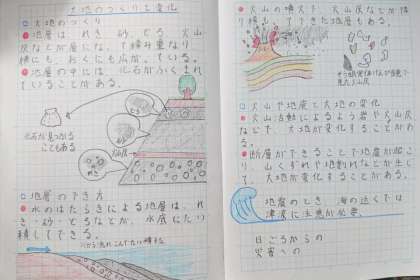 大地のつくりと変化
大地のつくり
地層は、れき、砂、どろ、火山
灰などが層になって積み重なり
横にも、おくにも広がっている。
地層の中には、化石がふくまれ
ていることがある。
化石が見つかる
こともある
火山灰
地層のでき方
水のはたらきによる地層は、れ
き・砂・どろなどが、水底にたい
積してできる。
火山のふん火で、火山灰などが
積もってできた地層もある。
火山や地震と大地の変化
火山活動によるよう岩や火山灰
などで、大地が変化することがあ
る。
断層ができることで地震が起こ
り、山くずれや地割れなどが生じ
て、大地が変化することがある。
地震のとき、海の近くでは
津波に注意が必要。
日ごろからの
災害への